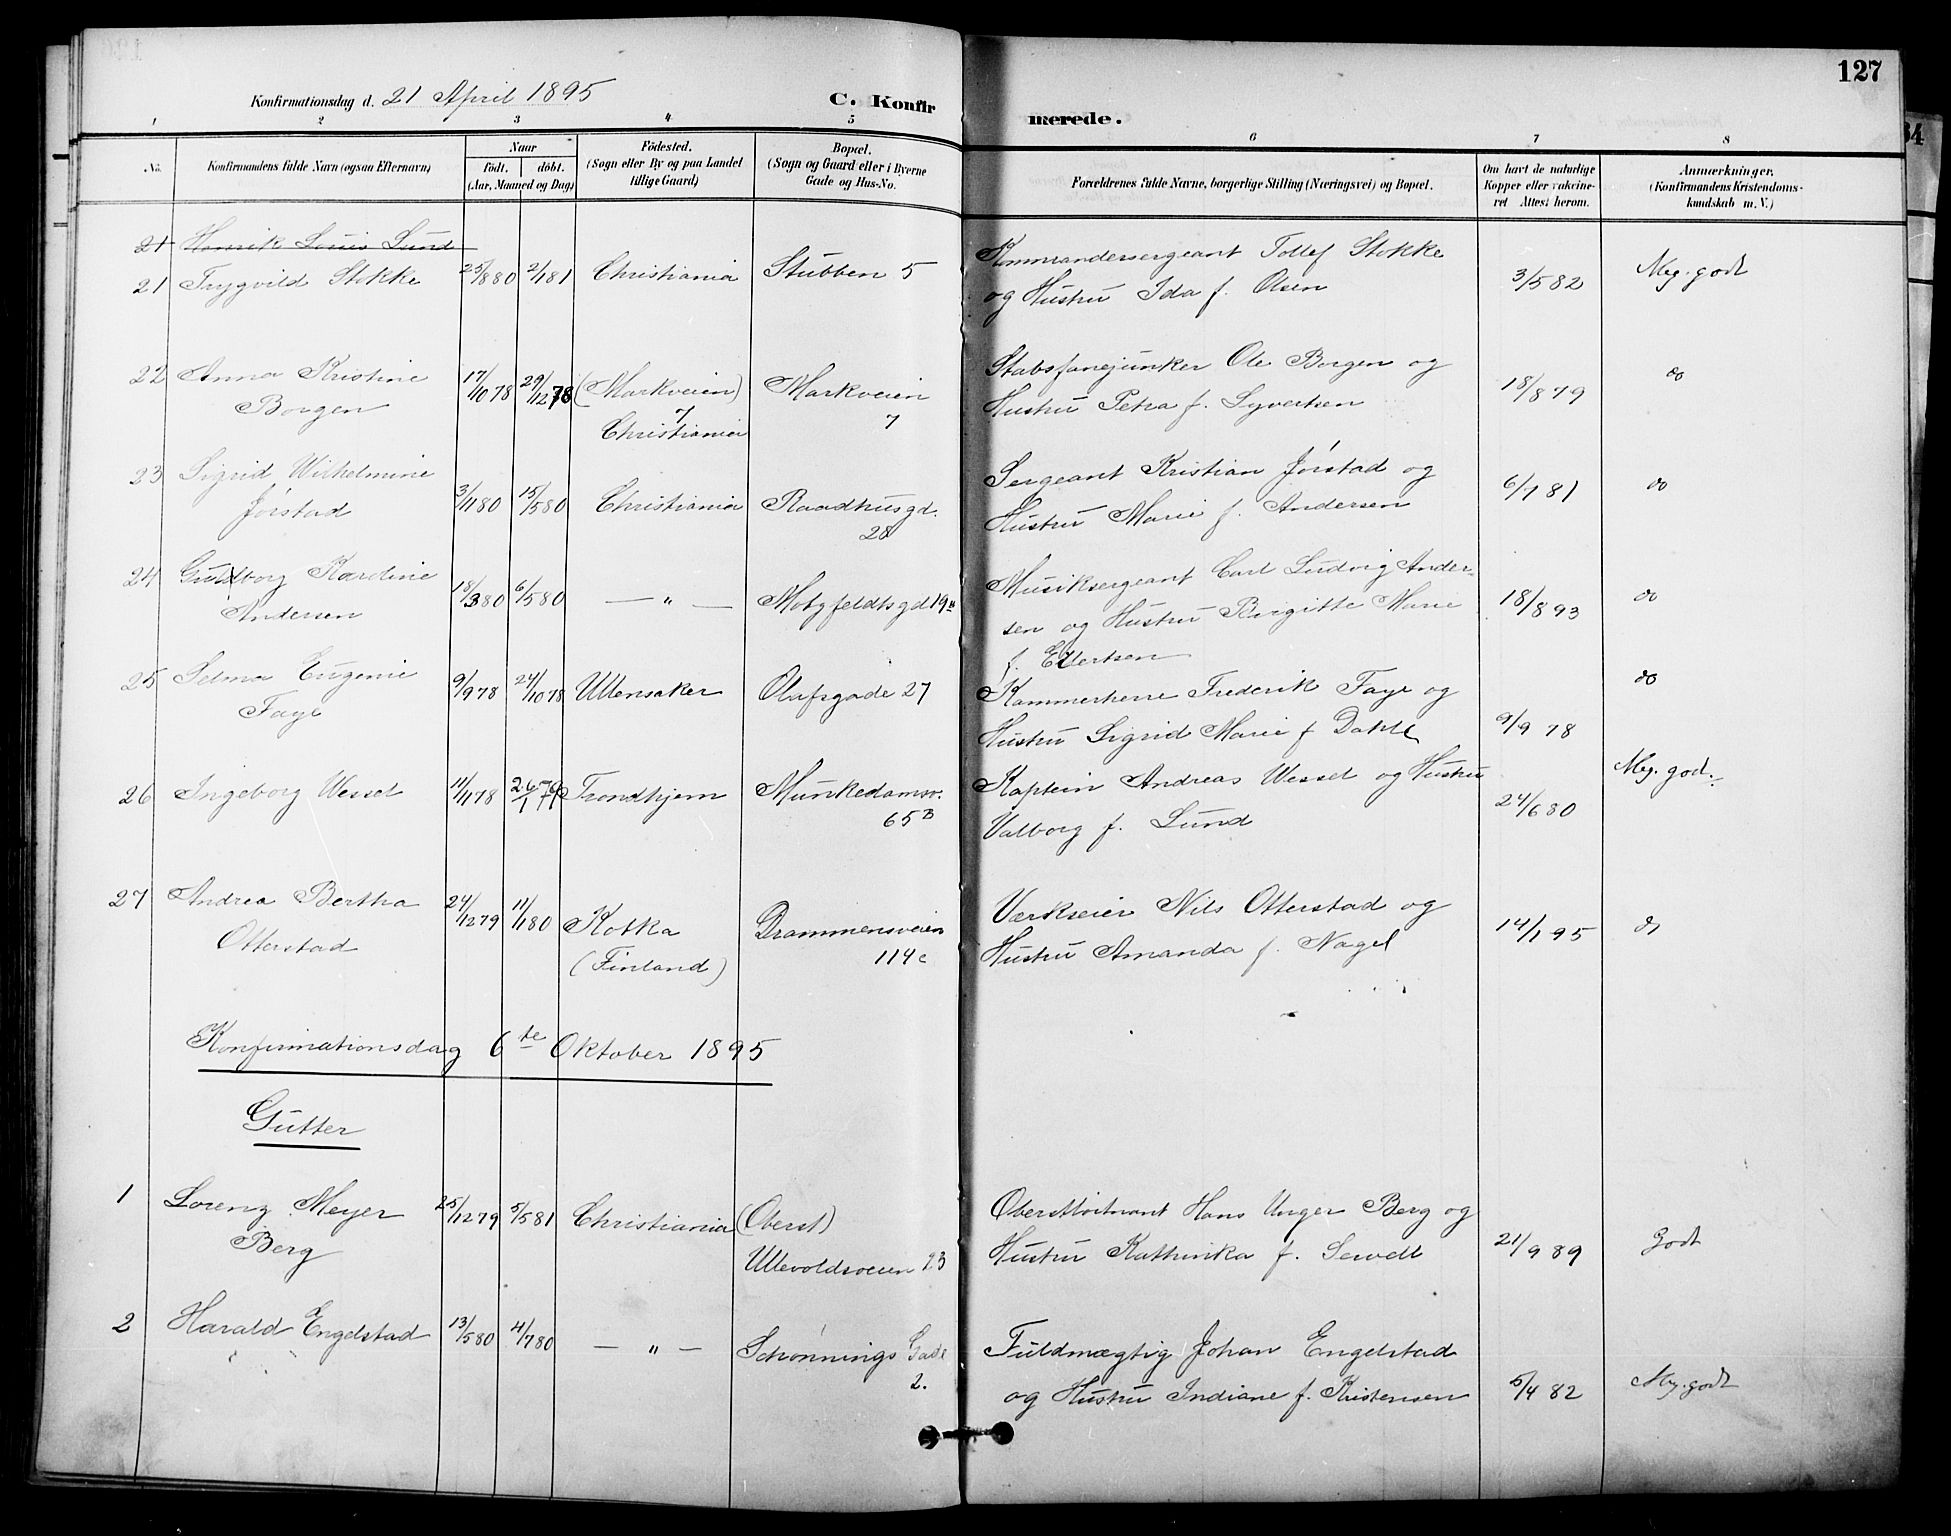 127
Konfirmationsdag d. 21 April 1895
C. Konfirmerede.
1 2 3 4 5 6 7 8
No. Konfirmandens fulde Navn (ogsaa Efternavn) Naar født. døbt. (Aar, Maaned og Dag) Fødested. (Sogn eller By og paa Landet tillige Gaard) Bopæl. (Sogn og Gaard eller i Byerne Gade og Hus-No. Forældrenes fulde Navne, borgerlige Stilling (Næringsvei) og Bopæl. Om havt de naturlige Kopper eller vakcineret Attest herom. Anmærkninger. (Konfirmandens Kristendomskundskab m. V.)
21 Henrik Louis Lund
21 Trygvild Stokke 25/8 80 2/1 81 Christiania Stubben 5 Kommandersergeant Tollef Stokke
og Hustru Ida f. Olsen 3/5 82 Meg. godt
22 Anna Kristine 17/10 78 29/12 78 (Markveien) Markveien Stabsfanejunker Ole Borgen og
Borgen 7 Christiania 7 Hustru Petra f. Syvertsen 18/8 79 do
23 Sigrid Wilhelmine Sergeant Kristian Jørstad og
Jørstad 3/1 80 15/5 80 Christiania Raadhusgd. 28 Hustru Marie f. Andersen 6/7 81 do
24 Guldborg Karoline 18/3 80 6/5 80 — " — Motzfeldtsgd 19 Musiksergeant Carl Ludvig Ander-
Andersen sen og Hustru Birgitte Marie 18/8 93 do
f. Ellertsen
25 Selma Eugenie 9/9 78 24/10 78 Ullensaker Olafsgade 27 Kammerherre Frederik Faye og
Faye Hustru Sigrid Marie f Dahll 9/9 78 do
26 Ingeborg Wessel 11/1 78 Trondhjem Munkedamsv. 65B Kaptein Andreas Wessel og Hustru
Valborg f. Lund 24/6 80 Meg. god.
27 Andrea Bertha 24/12 79 11/1 80 Kotka Drammensveien Værkseier Nils Otterstad og
Otterstad (Finland) 114c Hustru Amanda f. Nagel 14/1 95 do
Konfirmationsdag 6te Oktober 1895
Gutter
1 Lorenz Meyer 25/12 79 5/5 81 Christiania (Oberst) Oberstløitnant Hans Unger Berg og
Berg Ullevoldsveien 23 Hustru Kathinka f. 21/9 89 Godt
2 Harald Engelstad 13/5 80 4/7 80 — " — Schønnings Gade 2. Fuldmægtig Johan Engelstad
og Hustru Indiane f. Kristensen 5/4 82 Meg. godt